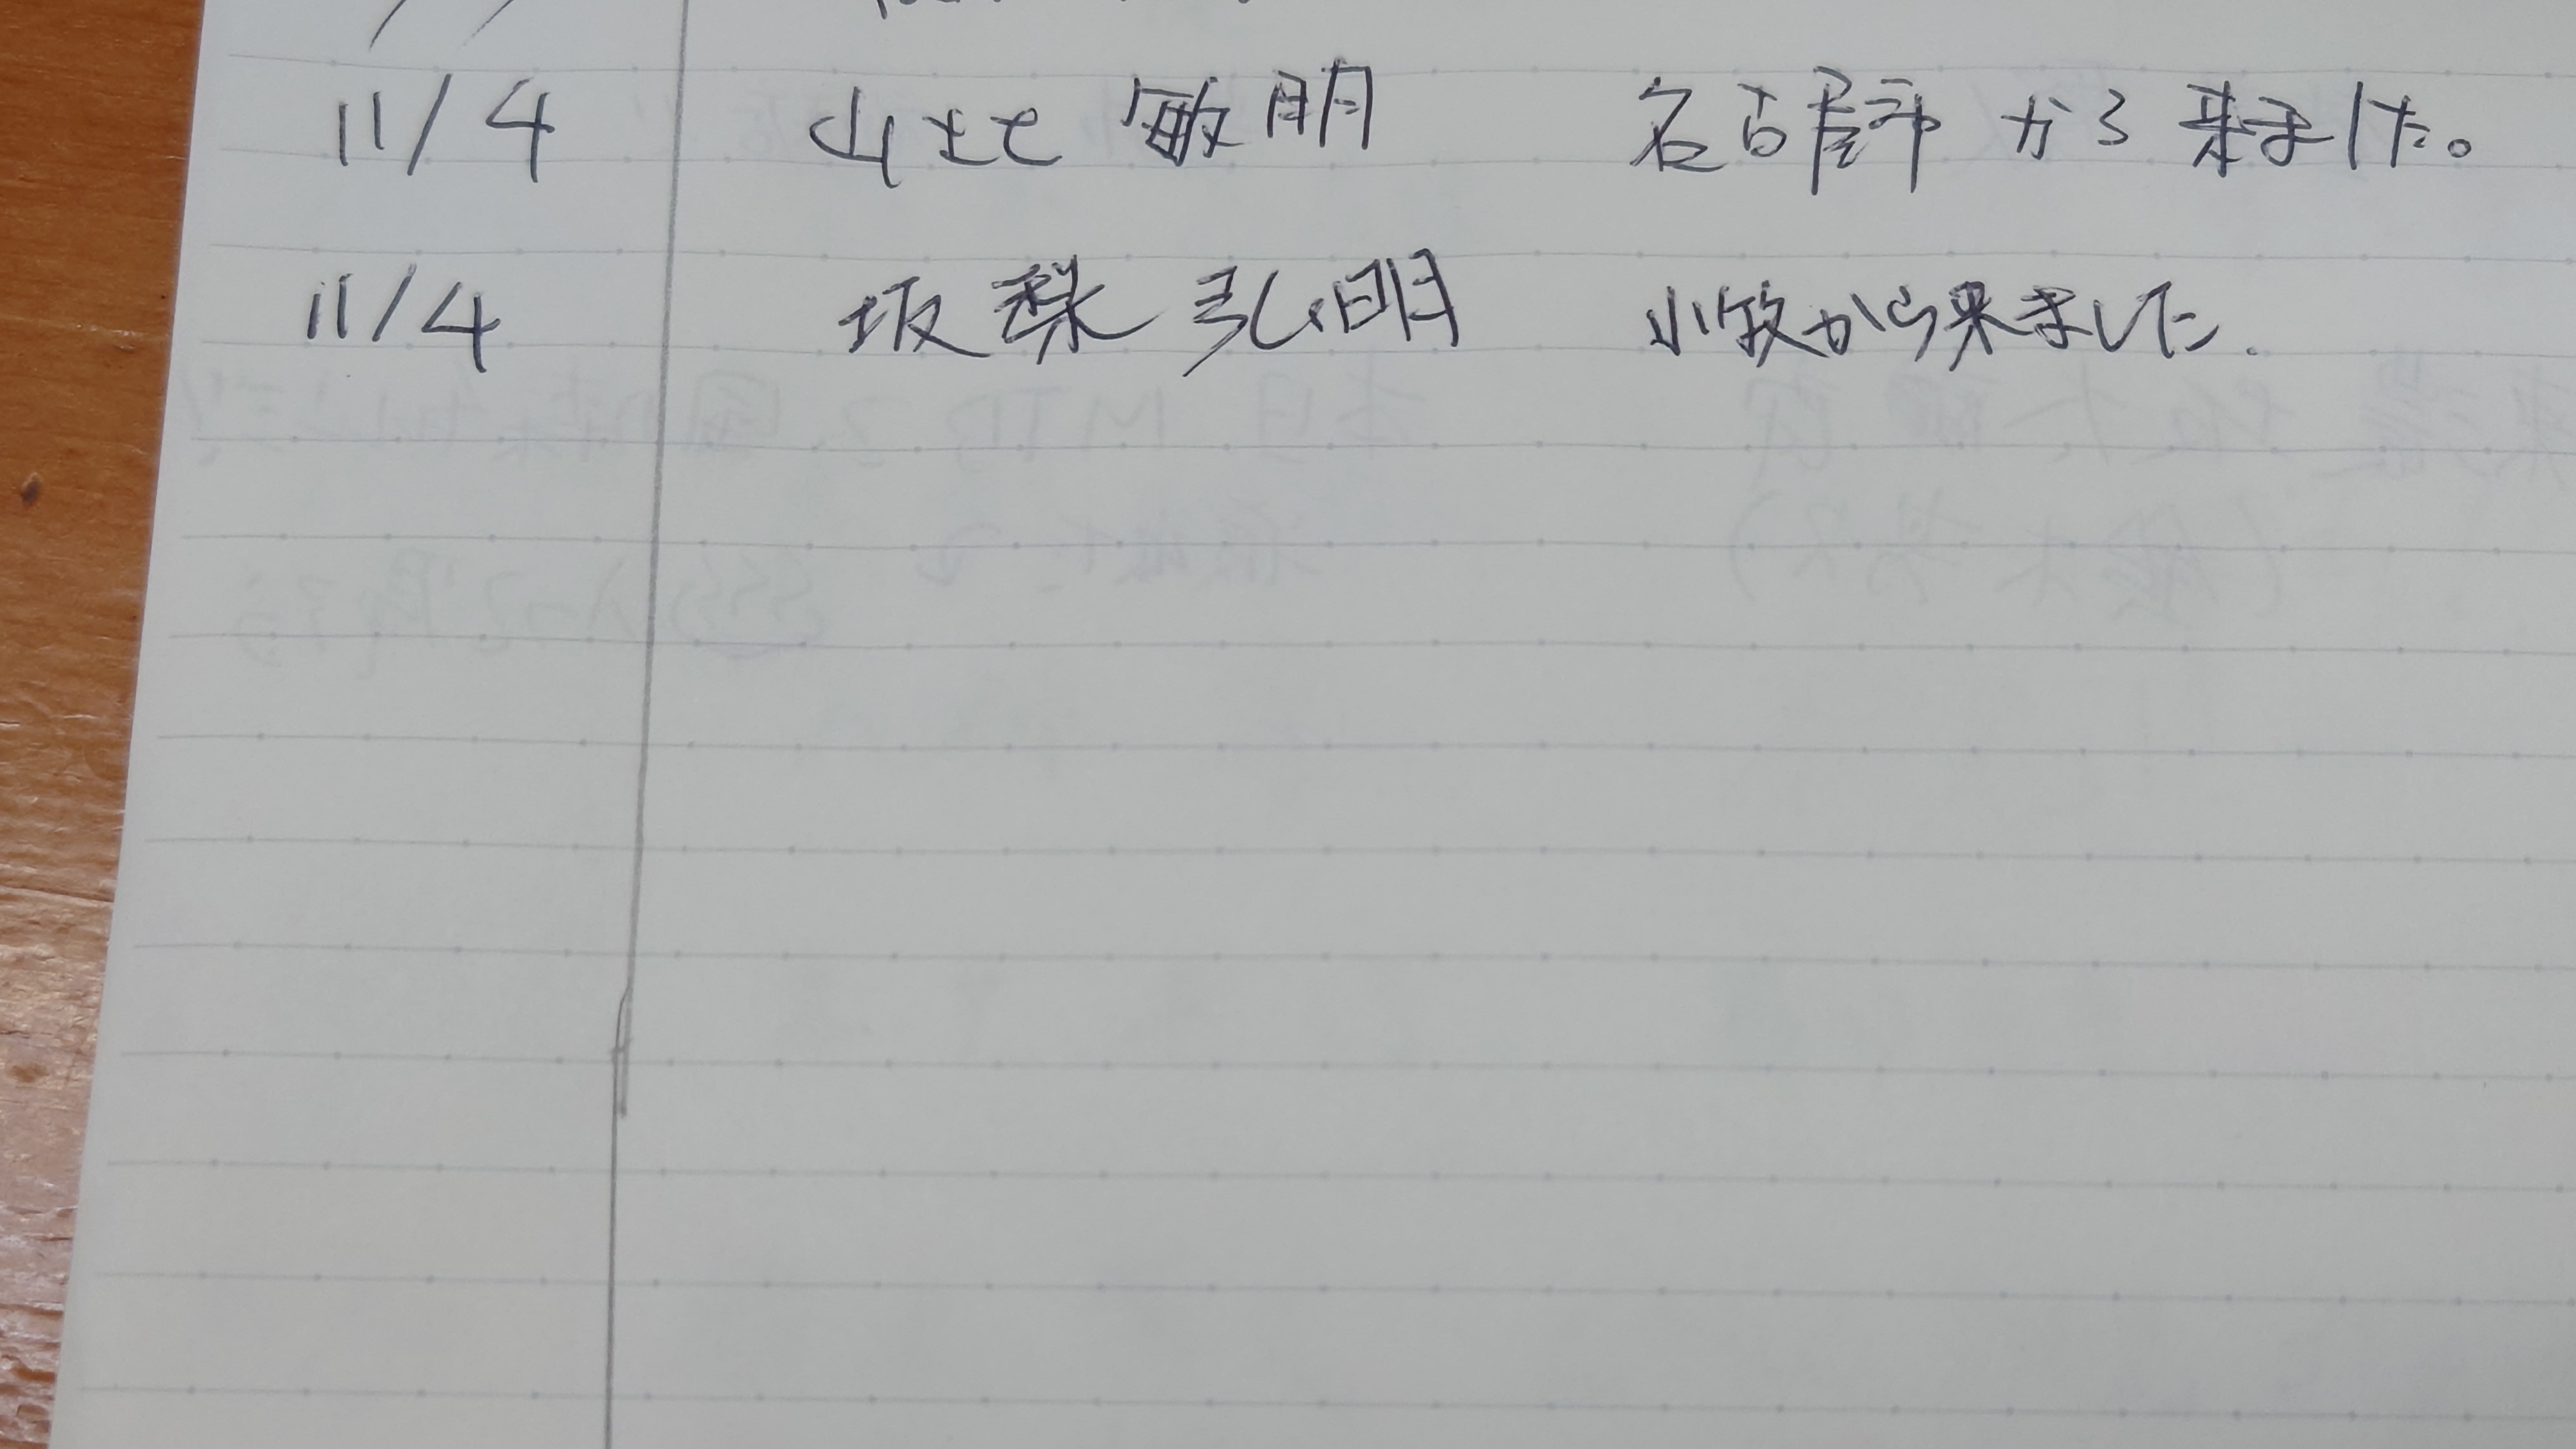 11/4 山北 敏明 名古屋市から来ました。
11/4 坂梨 弘明 小牧から来ました.